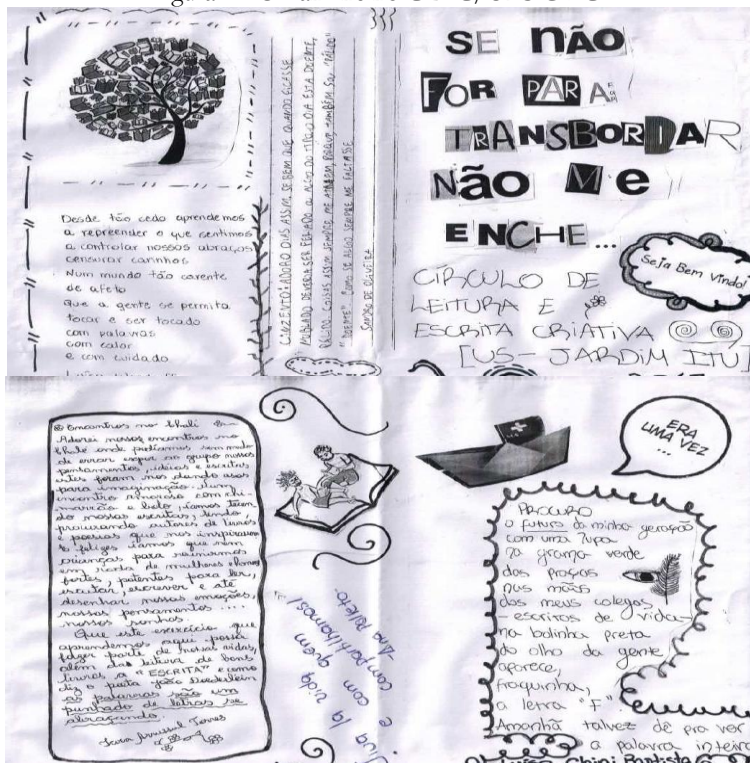 Desde tão cedo aprendemos
a repreender o que sentimos
a controlar nossos abraços
censurar carinhos
Num mundo tão carente
de afeto
Que a gente se permita
tocar e ser tocado
com palavras
com calor
e com cuidado
CINZENTO: ADORO DIAS ASSIM, SE BEM QUE QUANDO FICASSE
NUBLADO DEVERIA SER FERIADO
PÁLIDO. COISAS ASSIM SEMPRE ME ATRAEM, PORQUE TAMBÉM SOU "PÁLIDO"
"DOENTE" COMO SE ALGO SEMPRE ME FALTASSE
SANDRO DE OLIVEIRA
SE NãO
FOR PARA
TRANSBORDAR
Não Me
ENCHE...
Seja Bem Vindo!
CÍRCULO DE
LEITURA E
ESCRITA CRIATIVA
[US - JARDIM ITU]
Encontros no Chalé
Adorei nossos encontros no
Chalé onde podíamos sem medo
de errar expor ao grupo nossos
pensamentos, ideias e escritas
estes foram nos dando asas
para imaginação. Num
encontro amoroso com chi-
marrão e bolo, íamos tecen-
do nossas escritas, lendo,
procurando autores de livros
e poesias que nos inspiravam
e felizes íamos que nem
crianças para reunirmos
em roda de mulheres e homens
fortes, potentes para ler,
escutar, escrever e até
desenhar nossas emoções,
nossos pensamentos ....
nossos sonhos.
Que este exercício que
aprendemos aqui possa
fazer parte de nossas vidas,
além da leitura de bons
livros, a "ESCRITA" e como
diz o poeta João Doederlein
as palavras são um
punhado de letras se
abraçando.
Torres
Viva la vida
e com quem
compartilhamos!
ERA
UMA VEZ
...
PROCURO
o futuro da minha geração
com uma lupa
na grama verde
das praças
nas mãos
dos meus colegas
- escritos de vida -
na bolinha preta
do olho da gente
aparece,
fraquinha,
a letra "F"
Amanhã talvez dê pra ver
a palavra inteira
Chini Baptista